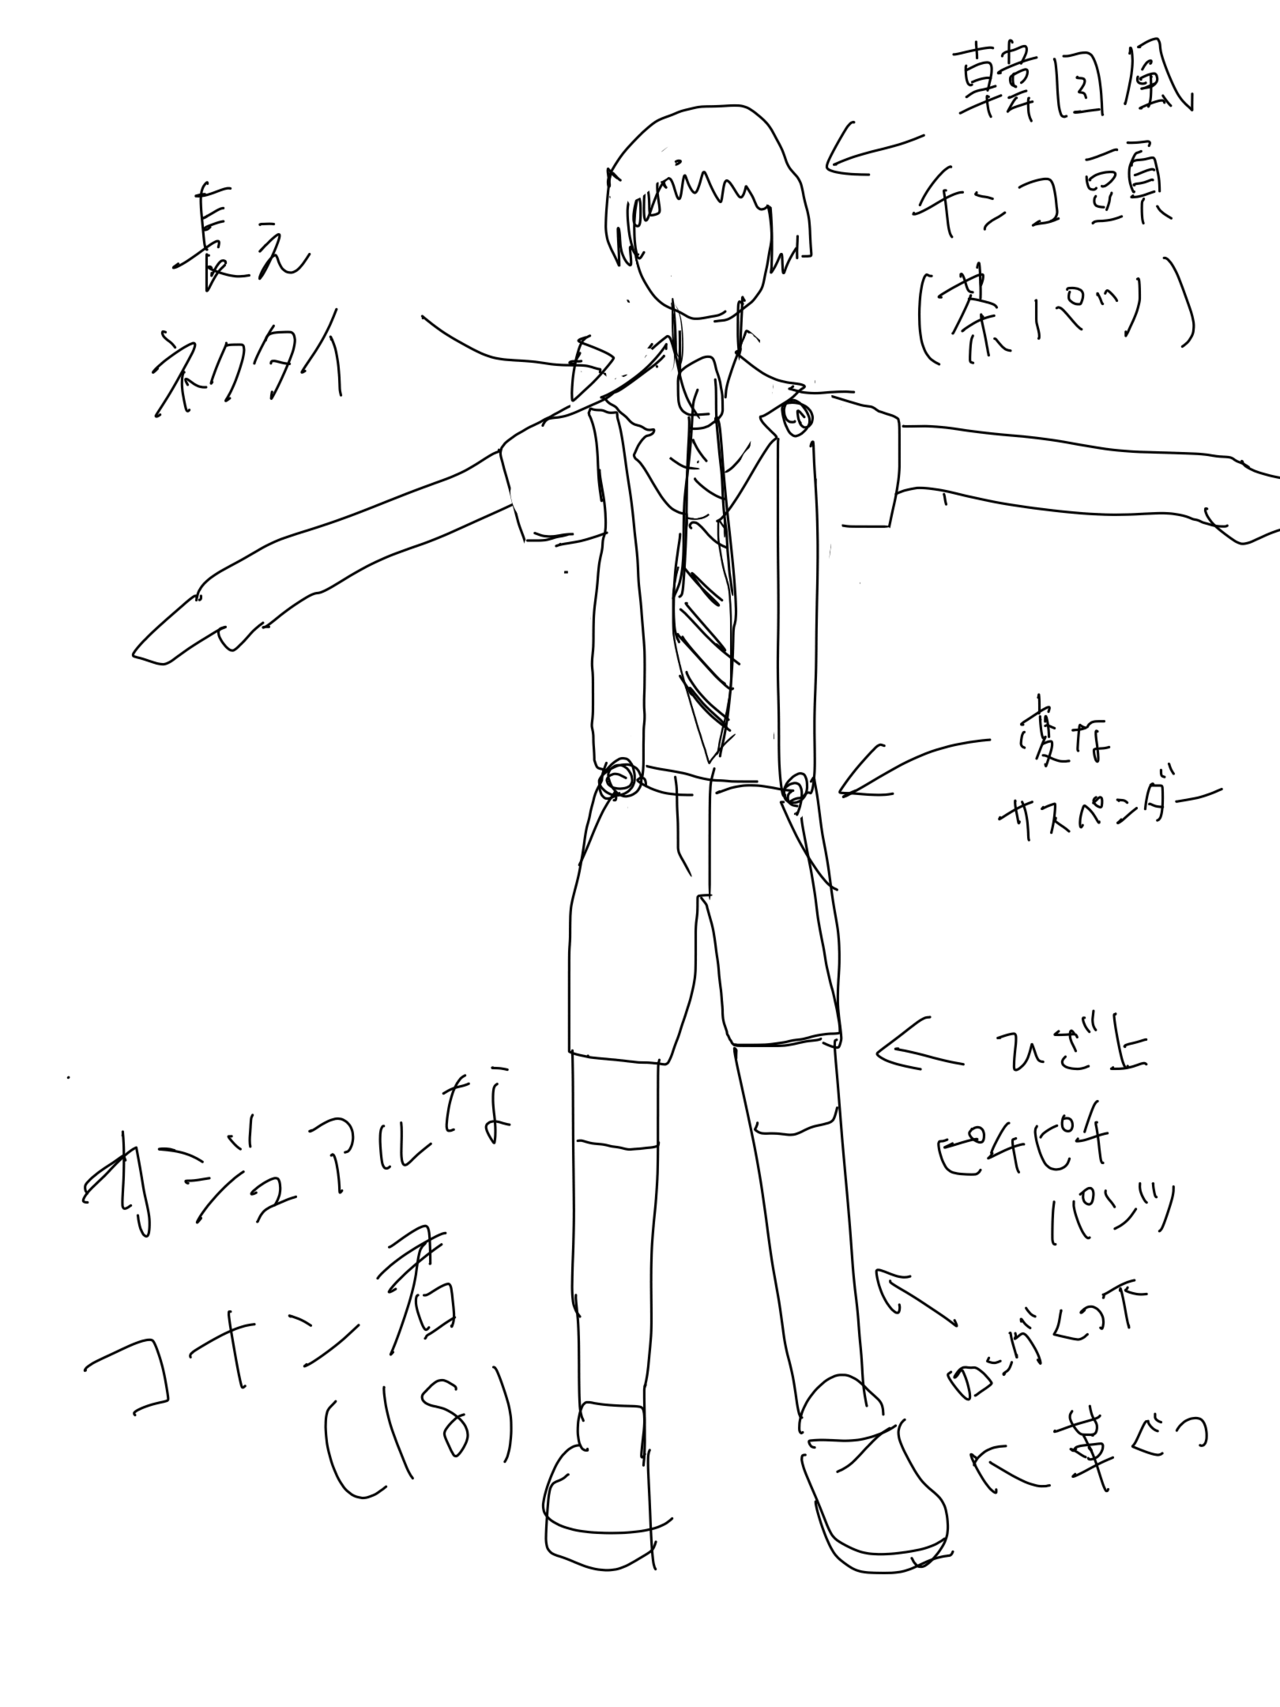 韓国風
チンコ頭
(茶パツ)
長え
ネクタイ
変な
サスペンダー
ひざ上
ピチピチ
パンツ
ロングくつ下
革ぐつ
カジュアルな
コナン君
(18)